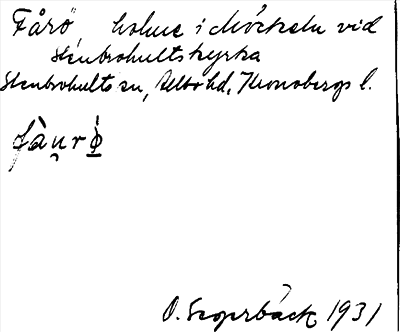 Fårö, holme i Möckeln vid
Stenbrohults kyrka
Stenbrohults sn, Allbo hd, Kronobergs l.
fàu̯rö̀
O. Sager­bäck 1931